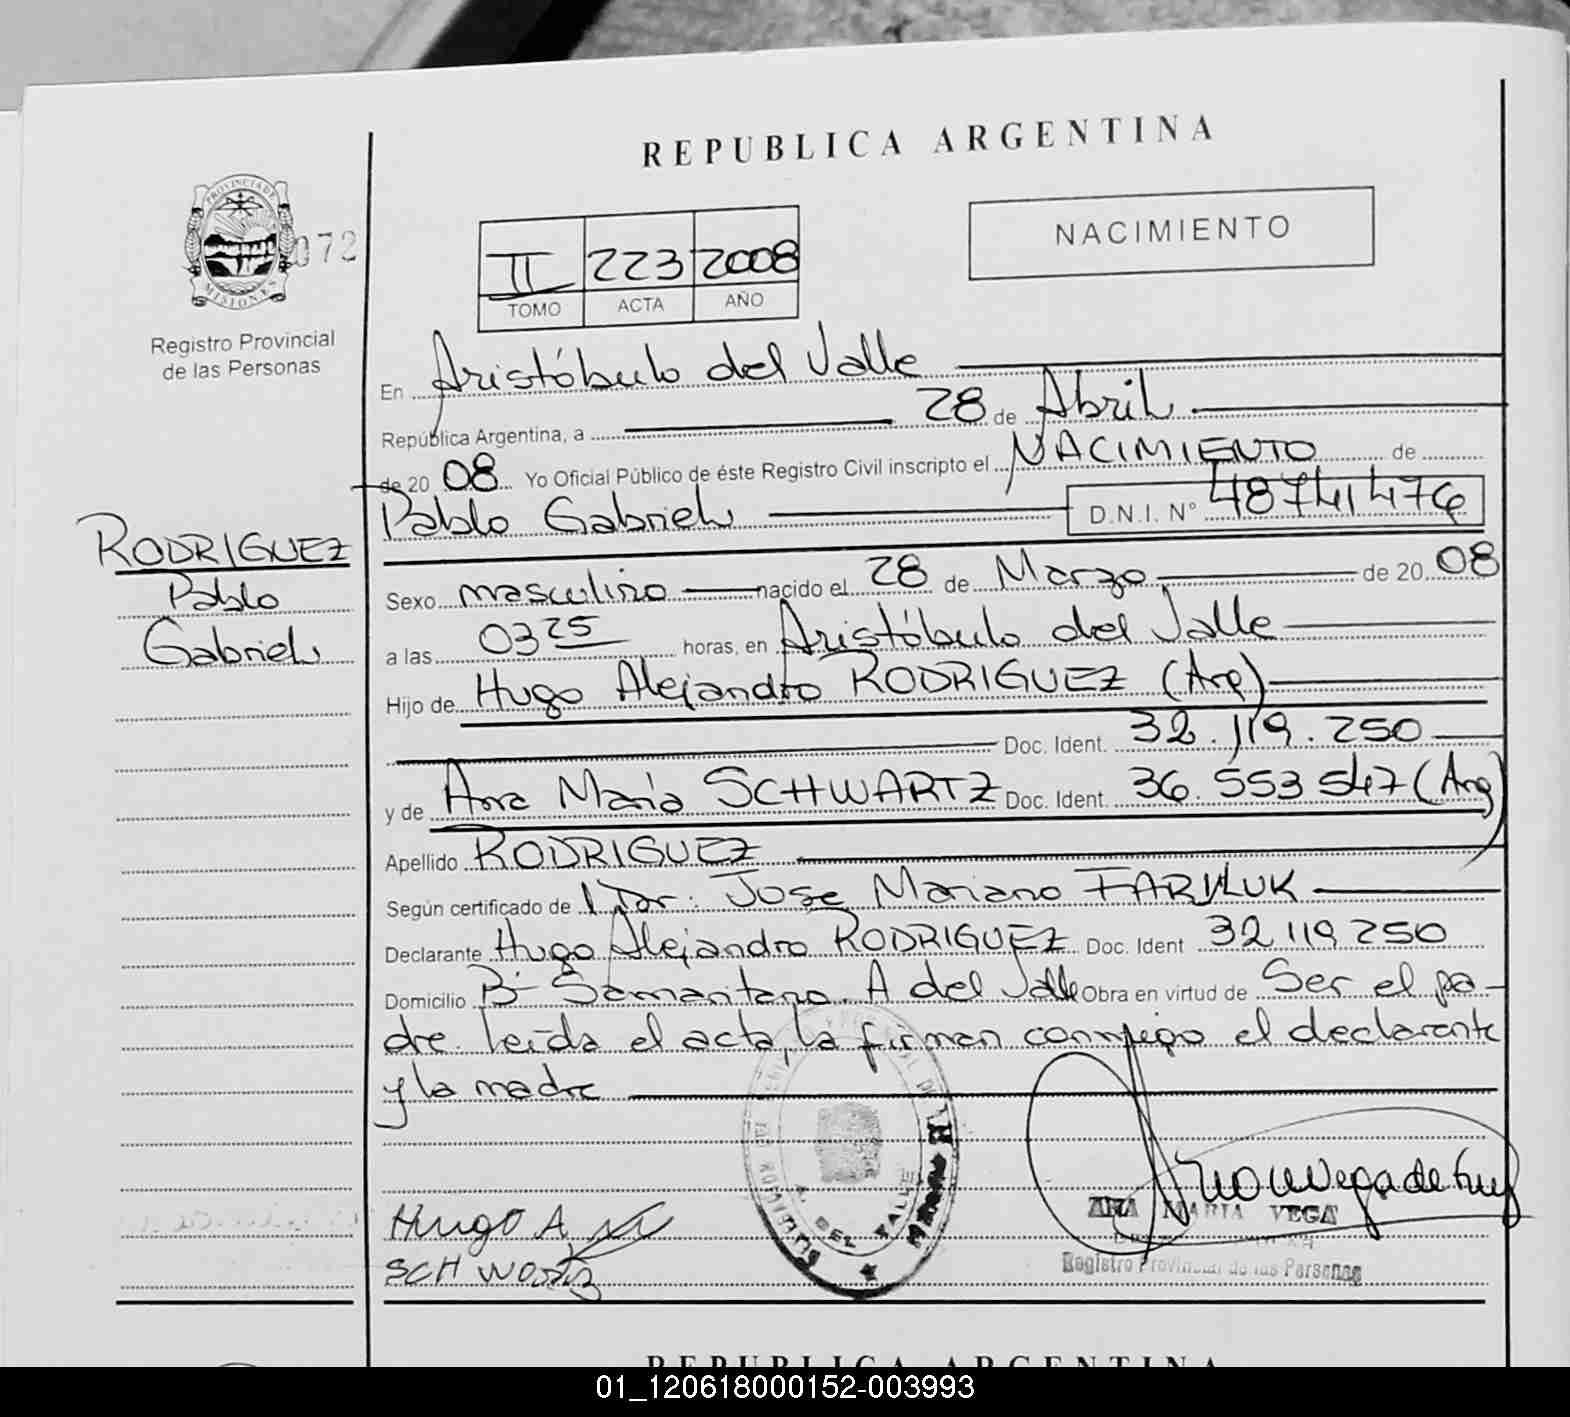 REPUBLICA ARGENTINA
PROVINCIA DE
MISIONES
072
Registro Provincial
de las Personas
NACIMIENTO
II 223 2008
TOMO ACTA AÑO
En Aristóbulo del Valle
República Argentina, a 28 de Abril
de 20 08 Yo Oficial Público de éste Registro Civil inscripto el NACIMIENTO de
Pablo Gabriel D.N.I. N° 48741476
RODRIGUEZ
Pablo
Gabriel
Sexo masculino nacido el 28 de Marzo de 20 08
a las 03 25 horas, en Aristóbulo del Valle
Hijo de Hugo Alejandro RODRIGUEZ (Arg)
Doc. Ident. 32.119.250
y de Ana María SCHWARTZ Doc. Ident. 36.553 547 (Arg)
Apellido RODRIGUEZ
Según certificado de l Dr. Jose Mariano
Declarante Hugo Alejandro RODRIGUEZ Doc. Ident 32 119 250
Domicilio B° Samaritano. A del Valle Obra en virtud de Ser el pa-
dre. leída el acta, la firman conmigo el declarante
y la madre
A. DEL VALLE
Hugo A
SCHWARTZ
ANA MARIA VEGA
Registro Provincial de las Personas
REPUBLICA ARGENTINA
01_120618000152-003993